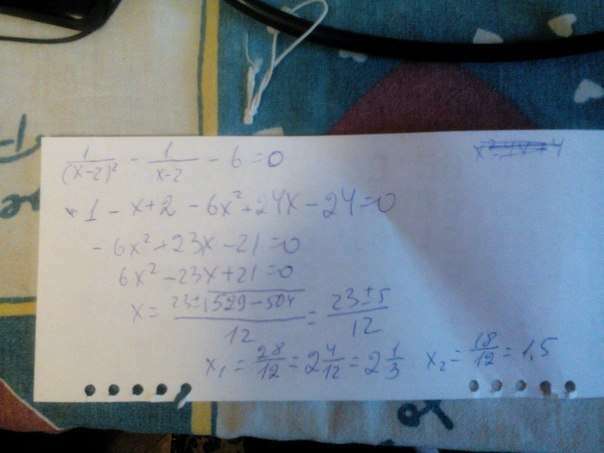 1/(x-2)² - 1/(x-2) - 6 = 0
1 - x+2 - 6x² + 24x - 24 = 0
- 6x² + 23x - 21 = 0
6x² - 23x + 21 = 0
x = (23 ± √529 - 504)/12 = (23 ± 5)/12
x₁ = 28/12 = 2 4/12 = 2 1/3 x₂ = 18/12 = 1,5